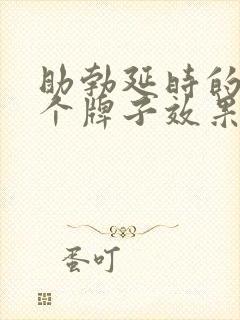 助勃延时的
个牌子效果
蛋叮